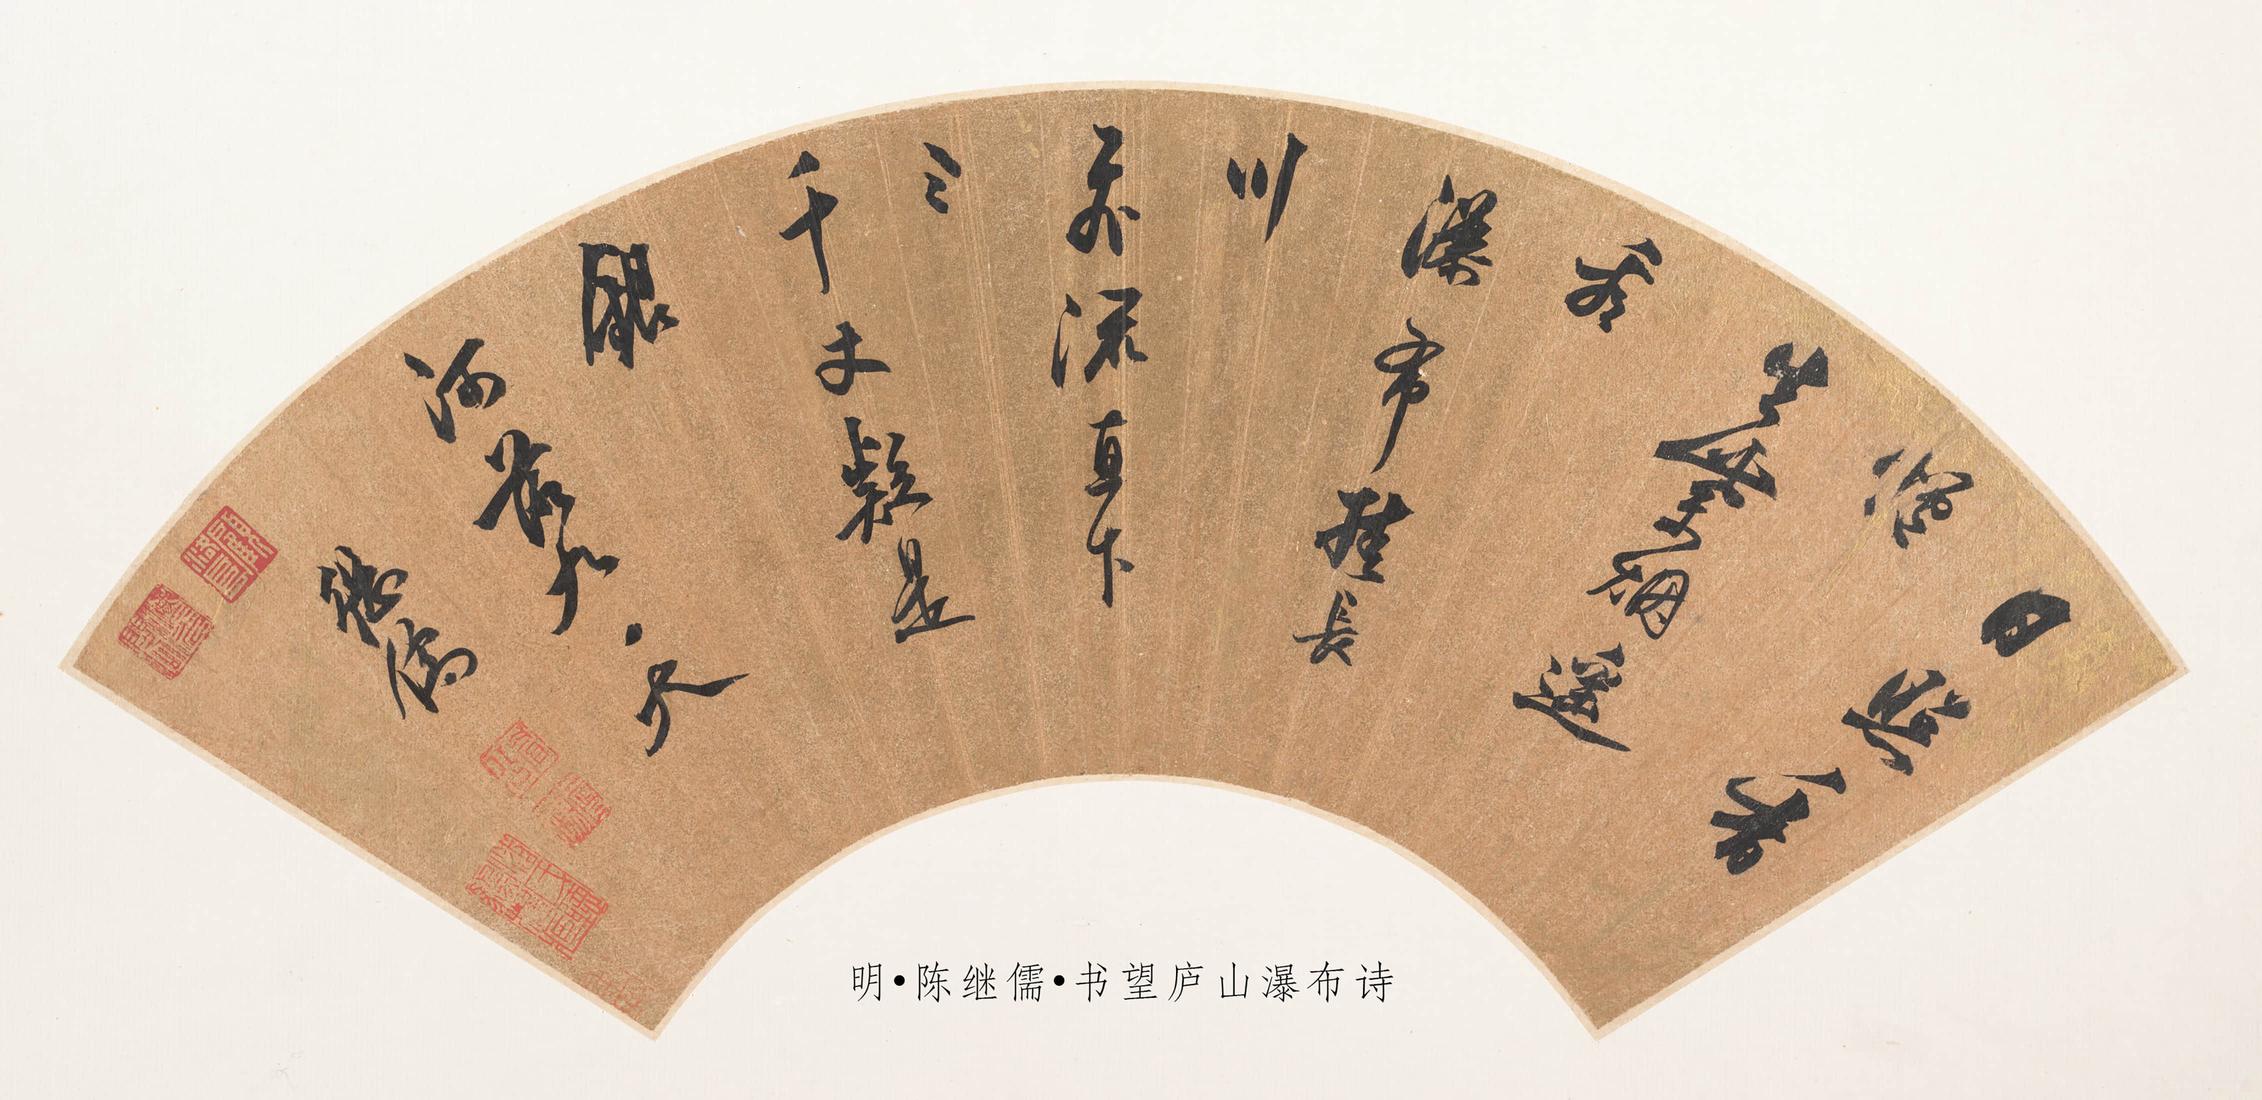 日照香
爐
生紫烟遥
看
瀑布挂長
川
飛流直下
三
千丈疑是
銀
河落九天
繼儒
明•陈继儒•书望庐山瀑布诗